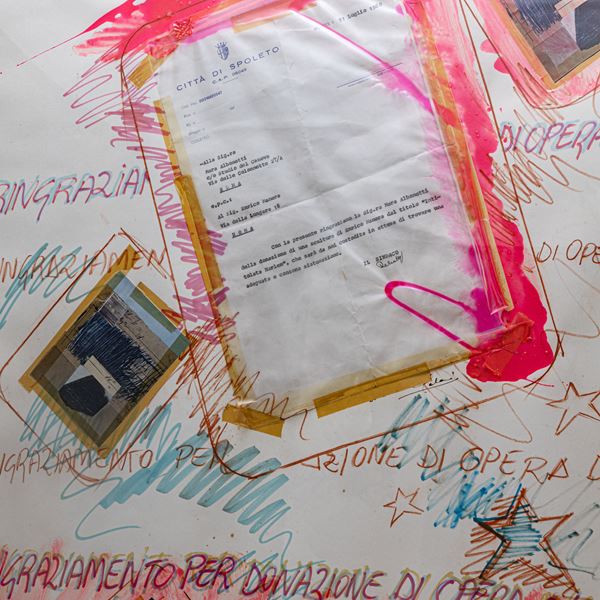 11 Luglio 19
CITTÀ DI SPOLETO
C.A.P. 06049
-Alla Sig.ra
c/o Studio del Canova
Via delle Colonnette 27/a
R O M A
e.p.c:
Al Sig. Enrico
Via della Lungara 18
R O M A
Con la presente ringraziamo la Sig.ra Mara Albonetti
della donazione di una scultura di Enrico dal titolo "Inti-
tolata Harlem", che sarà da noi custodita in attesa di trovare una
adeguata e consona sistemazione.
IL SINDACO
RINGRAZIAM DI OPERA
INGRAZIAMEN DI OPE
NGRAZIAMENTO PER ZIONE DI OPERA D
NGRAZIAMENTO PER DONAZIONE DI OPERA